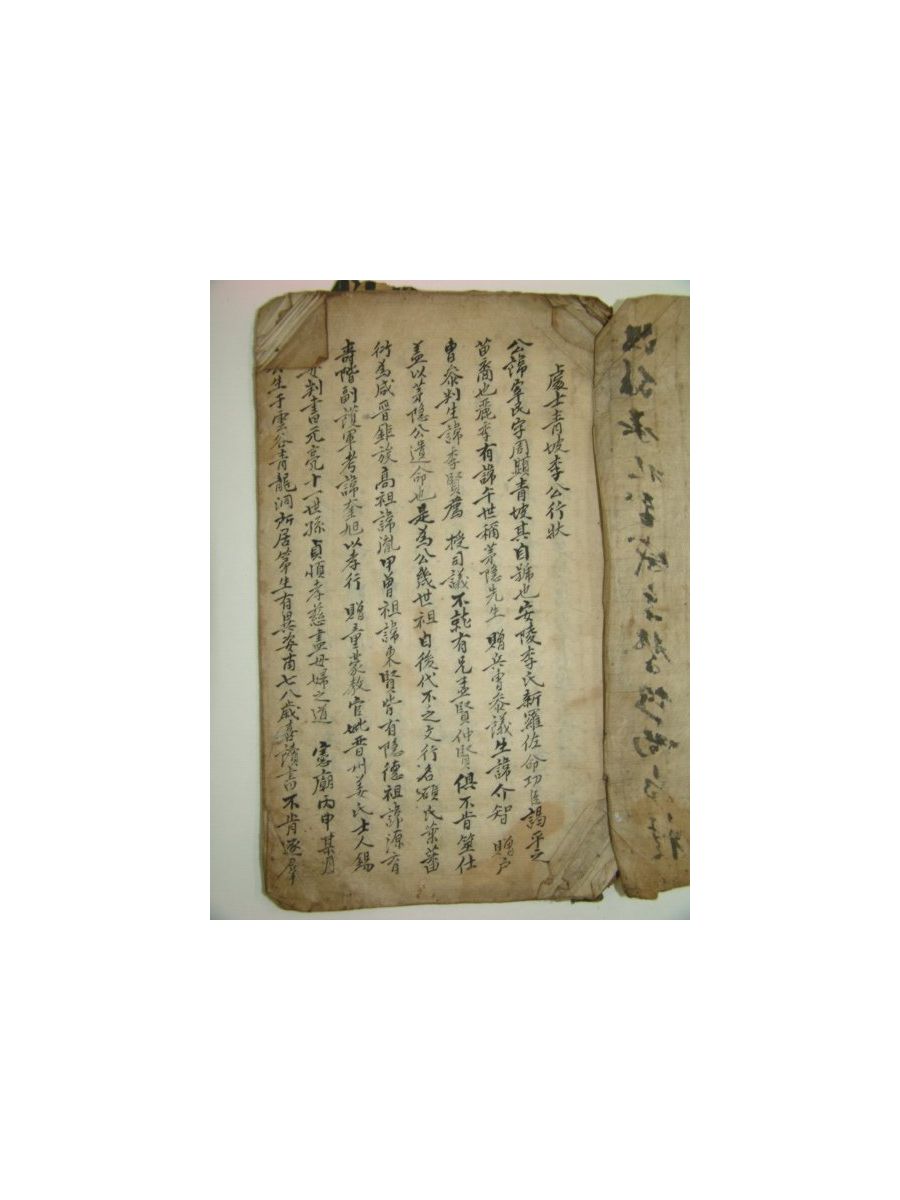 處士靑坡李公行狀
公諱宰民字周顯靑坡其自號也安陵李氏新羅佐命功臣謁平之
苗裔也麗季有諱午世稱茅隱先生 贈兵曹叅議生諱介智 贈戶
曹叅判生諱季賢薦 授司議不就有兄孟賢仲賢俱不肯筮仕
盖以茅隱公遺命也是爲公幾世祖自後代不乏文行名碩氏葉蕃
衍爲咸晋鉅族高祖諱胤甲曾祖諱東賢皆有隱德祖諱源育
壽階副護軍考諱奎旭以孝行 贈童蒙敎官妣晋州姜氏士人錫
女判書元亮十一世孫貞順孝慈盡母婦之道 憲廟丙申某月
公生于雲谷靑龍洞所居第生有異姿甫七八歲喜讀書不肯逐羣